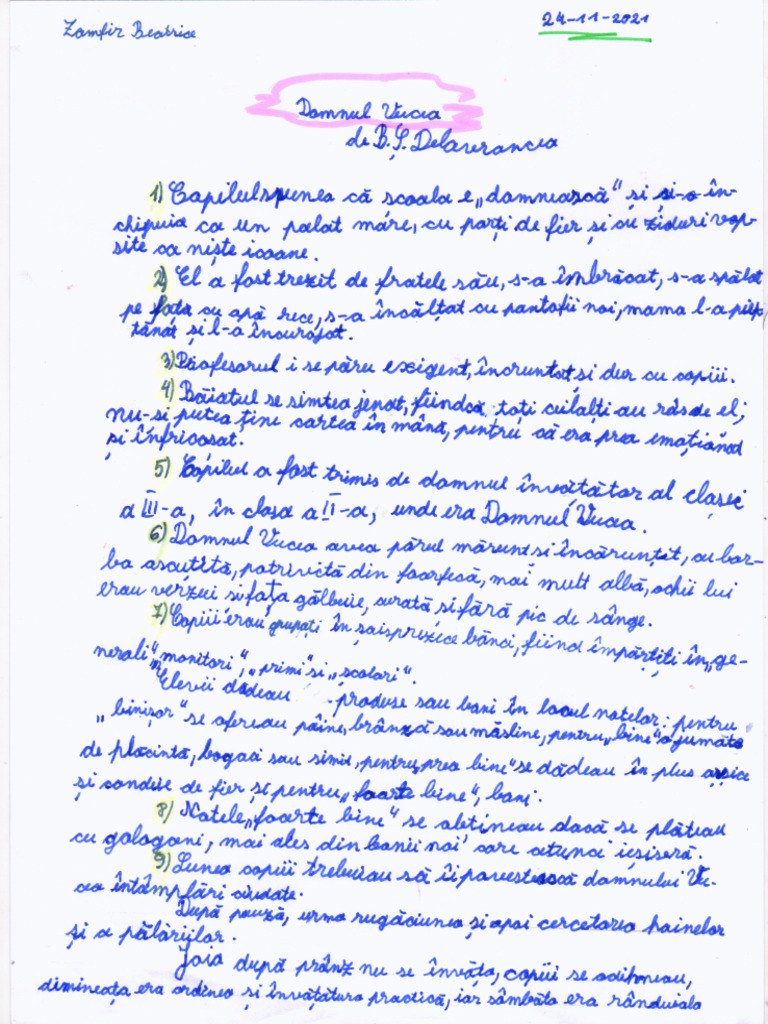 Zamfir Beatrice
24-11-2021
Domnul Vucea
de B. Ș. Delavrancea
1) Copilul spunea că școala e „domnească“ și și-o în-
chipuia ca un palat mare, cu porți de fier și cu ziduri vop-
site ca niște icoane.
2) El a fost trezit de fratele său, s-a îmbrăcat, s-a spălat
pe față cu apă rece, s-a încălțat cu pantofii noi, mama l-a piep
tănat și l-a încurajat.
3) Profesorul i se păru exigent, încruntat si dur cu copiii.
4) Băiatul se simțea jenat, fiindcă toți ceilalți au râs de el;
nu-si putea ține cartea în mână, pentru că era prea emoționat
și înfricosat.
5) Copilul a fost trimis de domnul învățător al clasei
a III-a, în clasa a II-a, unde era Domnul Vucea.
6) Domnul Vucea avea părul mărunt si încărunțit, cu bar-
ba ascuțită, potrivită din foarfecă, mai mult albă, ochii lui
erau verzui si fața gălbuie, curată si fără pic de sânge.
7) Copiii erau grupați în saisprezice bănci, fiind împărțiți în „ge-
nerali“, „monitori“, „primi“ si „scolari“.
Elevii dădeau produse sau bani în locul notelor: pentru
„binișor“ se ofereau pâine, brânză sau măsline, pentru „bine“ o jumăta
de plăcintă, bogaci sau simit, pentru „prea bine“ se dădeau în plus
și condeie de fier și pentru „foarte bine“, bani.
8) Notele „foarte bine“ se obțineau dacă se plăteau
cu gologani, mai ales din banii noi care atunci ieșiseră.
9) Lunea copiii trebuiau să îi povestească domnului Vu-
cea întâmplări ciudate.
După pauză, urma rugăciunea și apoi cercetarea hainelor
și a pălăriilor.
Joia după prânz nu se învăța, copiii se odihneau,
dimineața era ordinea și învățătura practică, iar sâmbăta era rânduiala